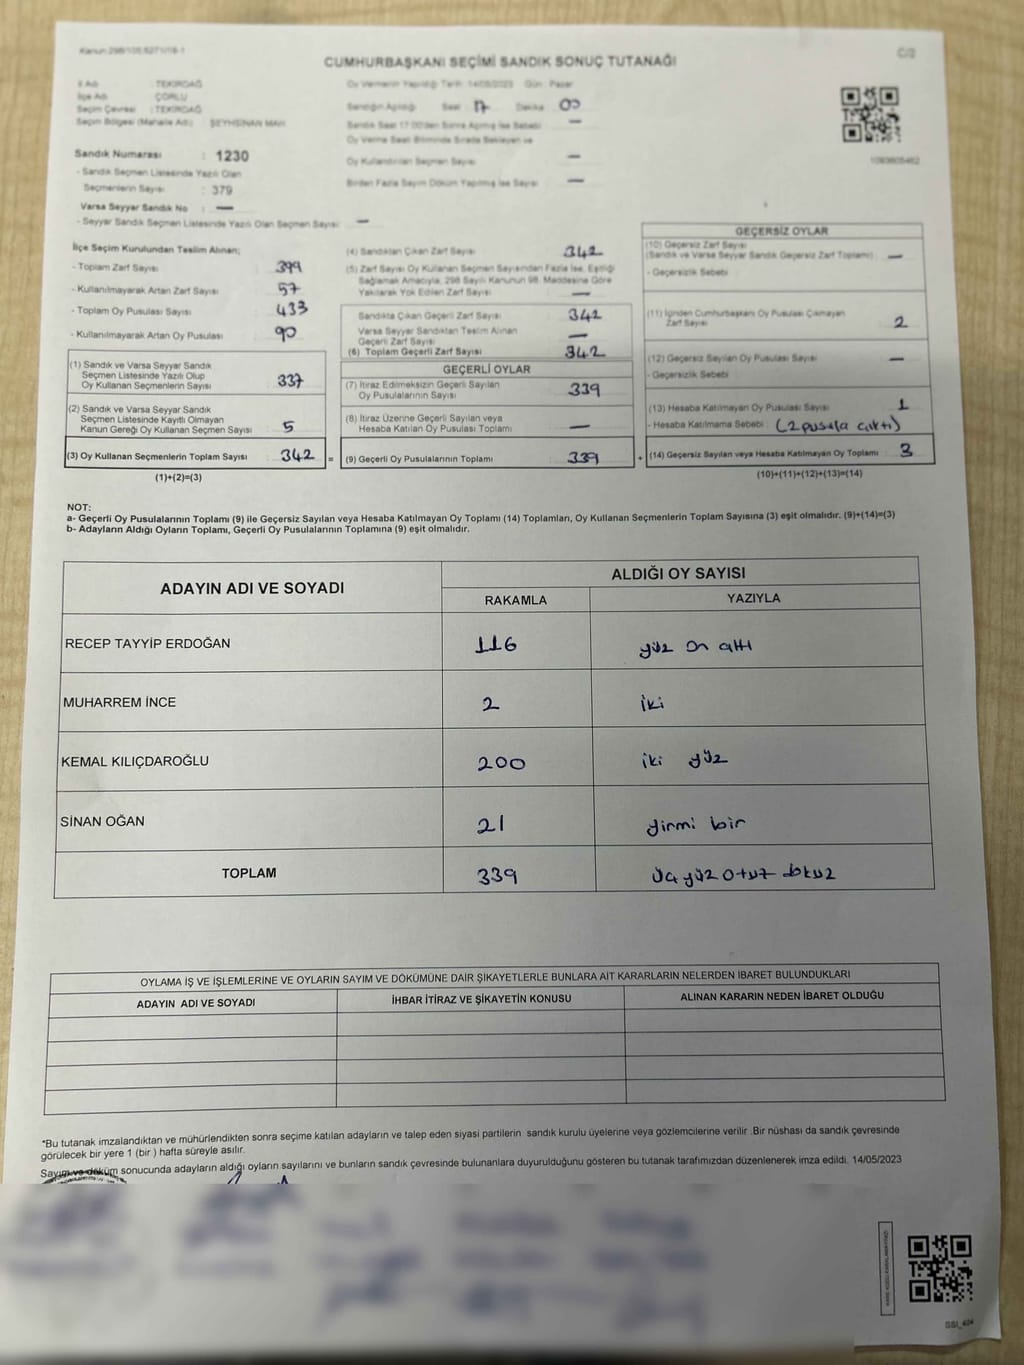 Kanun:298/105;6271/19-1
C/2
CUMHURBAŞKANI SEÇİMİ SANDIK SONUÇ TUTANAĞI
İl Adı : TEKİRDAĞ
İlçe Adı : ÇORLU
Seçim Çevresi : TEKİRDAĞ
Seçim Bölgesi (Mahalle Adı) : ŞEYHSİNAN MAH
Sandık Numarası : 1230
- Sandık Seçmen Listesinde Yazılı Olan
Seçmenlerin Sayısı : 379
Varsa Seyyar Sandık No : —
- Seyyar Sandık Seçmen Listesinde Yazılı Olan Seçmen Sayısı: —
Oy Vermenin Yapıldığı Tarih 14/05/2023 Gün : Pazar
Sandığın Açıldığı Saat 17 Dakika 00
Sandık Saat 17:00'den Sonra Açılmış İse Sebebi —
Oy Verme Saati Bitiminde Sırada Bekleyen ve
Oy Kullandırılan Seçmen Sayısı —
Birden Fazla Sayım Döküm Yapılmış İse Sayısı —
İlçe Seçim Kurulundan Teslim Alınan;
- Toplam Zarf Sayısı 399
- Kullanılmayarak Artan Zarf Sayısı 57
- Toplam Oy Pusulası Sayısı 433
- Kullanılmayarak Artan Oy Pusulası 90
(1) Sandık ve Varsa Seyyar Sandık
Seçmen Listesinde Yazılı Olup
Oy Kullanan Seçmenlerin Sayısı 337
(2) Sandık ve Varsa Seyyar Sandık
Seçmen Listesinde Kayıtlı Olmayan
Kanun Gereği Oy Kullanan Seçmen Sayısı 5
(3) Oy Kullanan Seçmenlerin Toplam Sayısı 342 =
(1)+(2)=(3)
(4) Sandıktan Çıkan Zarf Sayısı 342
(5) Zarf Sayısı Oy Kullanan Seçmen Sayısından Fazla İse, Eşitliği
Sağlamak Amacıyla, 298 Sayılı Kanunun 98. Maddesine Göre
Yakılarak Yok Edilen Zarf Sayısı —
Sandıkta Çıkan Geçerli Zarf Sayısı 342
Varsa Seyyar Sandıktan Teslim Alınan
Geçerli Zarf Sayısı —
(6) Toplam Geçerli Zarf Sayısı 342
GEÇERLİ OYLAR
(7) İtiraz Edilmeksizin Geçerli Sayılan
Oy Pusulalarının Sayısı 339
(8) İtiraz Üzerine Geçerli Sayılan veya
Hesaba Katılan Oy Pusulası Toplamı —
(9) Geçerli Oy Pusulalarının Toplamı 339 +
GEÇERSİZ OYLAR
(10) Geçersiz Zarf Sayısı
(Sandık ve Varsa Seyyar Sandık Geçersiz Zarf Toplamı) —
- Geçersizlik Sebebi
(11) İçinden Cumhurbaşkanı Oy Pusulası Çıkmayan
Zarf Sayısı 2
(12) Geçersiz Sayılan Oy Pusulası Sayısı —
- Geçersizlik Sebebi
(13) Hesaba Katılmayan Oy Pusulası Sayısı 1
- Hesaba Katılmama Sebebi : (2 pusula çıktı)
(14) Geçersiz Sayılan veya Hesaba Katılmayan Oy Toplamı 3
(10)+(11)+(12)+(13)=(14)
NOT:
a- Geçerli Oy Pusulalarının Toplamı (9) ile Geçersiz Sayılan veya Hesaba Katılmayan Oy Toplamı (14) Toplamları, Oy Kullanan Seçmenlerin Toplam Sayısına (3) eşit olmalıdır. (9)+(14)=(3)
b- Adayların Aldığı Oyların Toplamı, Geçerli Oy Pusulalarının Toplamına (9) eşit olmalıdır.
ADAYIN ADI VE SOYADI
ALDIĞI OY SAYISI
RAKAMLA YAZIYLA
RECEP TAYYİP ERDOĞAN 116 yüz on altı
MUHARREM İNCE 2 iki
KEMAL KILIÇDAROĞLU 200 iki yüz
SİNAN OĞAN 21 yirmi bir
TOPLAM 339 üç yüz otuz dokuz
OYLAMA İŞ VE İŞLEMLERİNE VE OYLARIN SAYIM VE DÖKÜMÜNE DAİR ŞİKAYETLERLE BUNLARA AİT KARARLARIN NELERDEN İBARET BULUNDUKLARI
ADAYIN ADI VE SOYADI İHBAR İTİRAZ VE ŞİKAYETİN KONUSU ALINAN KARARIN NEDEN İBARET OLDUĞU
*Bu tutanak imzalandıktan ve mühürlendikten sonra seçime katılan adayların ve talep eden siyasi partilerin sandık kurulu üyelerine veya gözlemcilerine verilir .Bir nüshası da sandık çevresinde
görülecek bir yere 1 (bir ) hafta süreyle asılır.
Sayım ve döküm sonucunda adayların aldığı oyların sayılarını ve bunların sandık çevresinde bulunanlara duyurulduğunu gösteren bu tutanak tarafımızdan düzenlenerek imza edildi. 14/05/2023